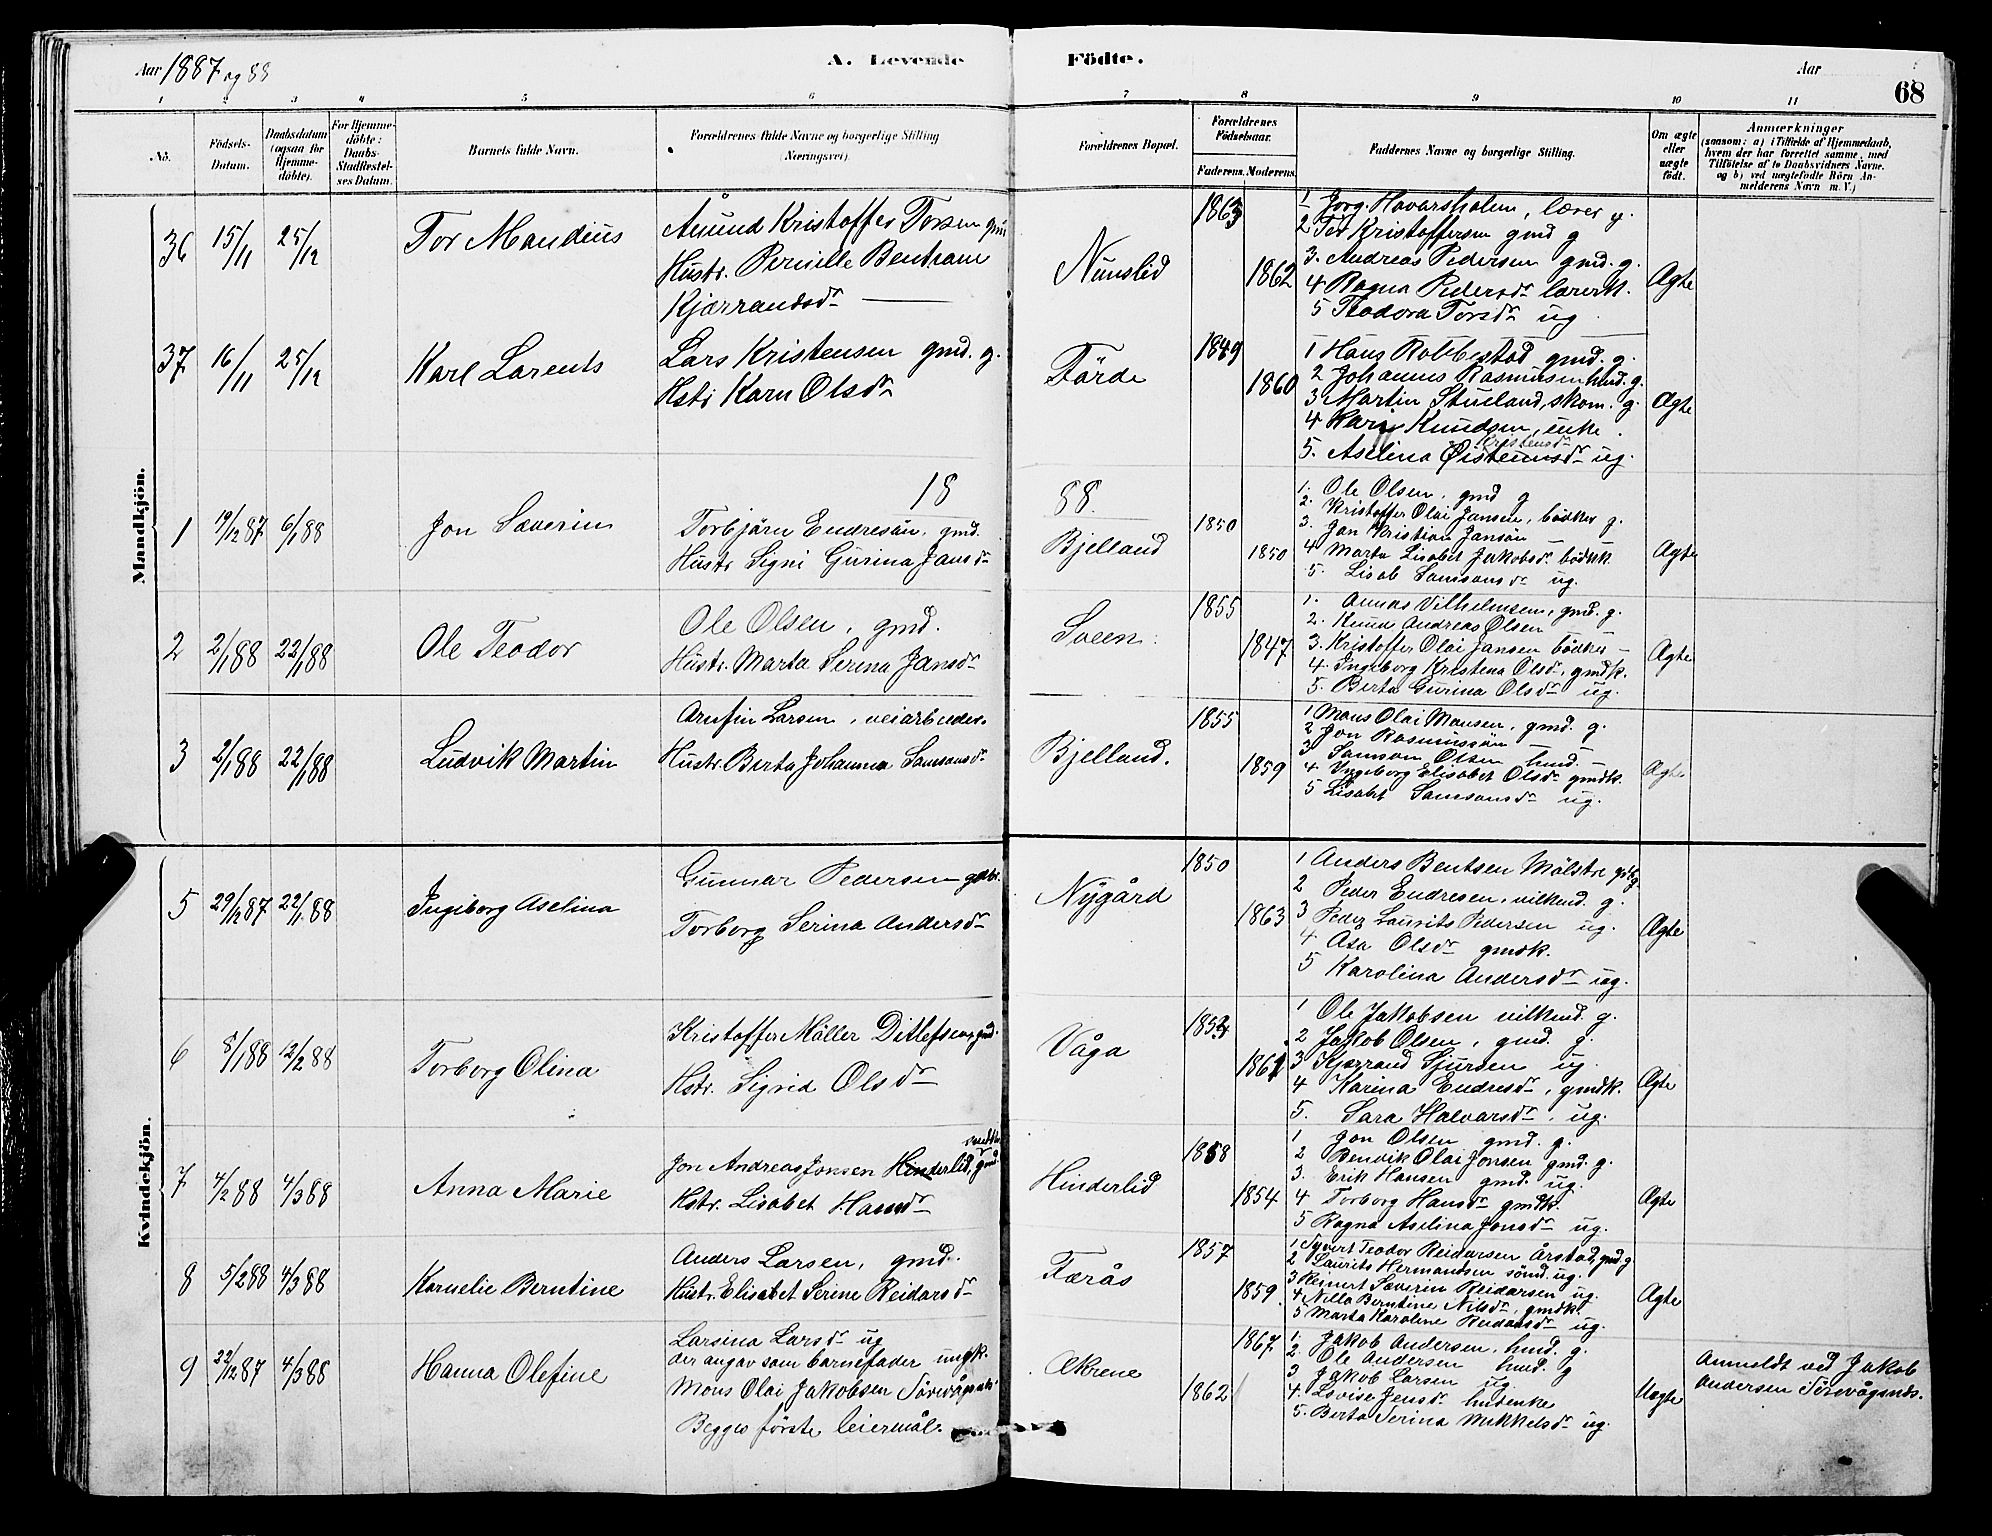 Aar 1887 og 88
A. Levende Födte.
Aar
68
1 2 3 4 5 6 7 8 9 10 11
No.
Födsels-Datum.
Daabsdatum (ogsaa for Hjemme-döbte).
For Hjemme-döbte: Daabs-Stadfæstel-ses Datum.
Barnets fulde Navn.
Forældrenes fulde Navne og borgerlige Stilling (Næringsvei).
Forældrenes Bopæl.
Forældrenes Födselsaar.
Faderens. Moderens.
Faddernes Navne og borgerlige Stilling.
Om ægte eller uægte födt.
Anmærkninger
(saasom: a) i Tilfælde af Hjemmedaab, hvem der har forrettet samme, med Tilföielse af to Daabsvidners Navne. og b) ved uægtefödte Börn An-melderens Navn m. V.)
Mandkjön.
36 15/11 25/12 Tor Mandius
Amund Kristoffer Torsen gmd
Hustr. Pernille Bentrane
Kjærrandsdr
Nunslid
1863
1862
1 Jörg. Havarsholm, lærer g.
2 Tor Kristoffersen gmd g
3. Andreas Pedersen gmd. g.
4 Ragna Pedersdr lærerk.
5 Teodora Torsdr ug
Ægte
37 16/11 25/12 Karl Lorents
Lars Kristensen gmd. g.
Hstr Karn Olsdr
Förde
1849
1860
1 Hans Robbestad gmd. g.
2 Johannes Rasmussen hmd. g.
3 Martin Stueland, skom. g.
4 Kari Knudsen, enke.
Kristensdr
5. Aselina Øistensdr ug.
Ægte
18 88.
1 19/12 87 6/1 88 Jon Severin
Torbjörn Endresön, gmd.
Hustr Signi Gurina Jansdr
Bjelland
1850
1850
1. Ole Olsen, gmd g
2. Kristoffer Olai Jansen, bödker g.
3. Jon Kristian Jansön —
4 Marta Lisabet Jakobsdr. bödkk.
5. Lisab Samsonsdr ug.
Ægte
2 2/1 88 22/1 88 Ole Teodor
Ole Olsen, gmd.
Hustr. Marta Serina Jansdr
Sveen
1855
1847
1. Annas Vilhelmsen, gmd. g.
2. Knud Andreas Olsen —
3. Kristoffer Olai Jansen bödker —
4. Ingeborg Kristena Olsdr, gmdk.
5. Berta Gurina Olsdr ug.
Ægte
3 2/1 88 22/1 88 Ludvik Martin
Arnfin Larsen, veiarbeider.
Hustr. Berta Johanna Samsonsdr
Bjelland.
1855
1859
1 Mons Olai Monsen, gmd. g.
2 Jon Rasmussön — —
3 Samson Olsen hmd. —
4. Ingeborg Elisabet Olsdr gmdk.
5 Lisabet Samsonsdr ug.
Ægte
Kvindekjön.
5 29/12 87 22/1 88 Ingeborg Aselina
Gunnar Pedersen gdbr.
Torborg Serina Andersdr
Nygård
1850
1863
1 Anders Bentsen Mölstre g
2 Peder Endresen, vilkmd. g.
3 Peder Laurits Pedersen ug.
4 Åsa Olsdr gmdk.
5 Karolina Andersdr ug.
Ægte
6 8/1 88 12/2 88 Torborg Olina
Kristoffer Möller Ditlefsen, gmd.
Hstr. Sigrid Olsdr
Våga
1854
1861
1 Ole Jakobsen vilkmd. g.
2 Jakob Olsen, gmd. g.
3 Kjærrand Sjursen ug.
4 Karina Endresdr, gmdk.
5. Sara Halvarsdr, ug.
Ægte
7 4/2 88 4/3 88 Anna Marie
Jon Andreas Jonsen Hinderlid, gmd.
Hstr. Lisabet Hansdr
Hinderlid
1858
1854
1 Jon Olsen gmd. g.
2 Benvik Olai Jonsen gmd. g.
3. Erik Hansen gmd ug.
4 Torborg Hansdr gmdk.
5 Ragna Aselina Jonsdr ug.
Ægte
8 5/2 88 4/3 88 Kornelie Berntine
Anders Larsen, gmd.
Hustr. Elisabet Serene Reidarsdr
Færås
1857
1859
1. Syvert Teodor Reidarsen Årstad, gmd. g
2 Laurits Hermandsen sömd. ug.
3 Reinert Severin Reidarsen ug.
4. Nilla Berntine Nilsdr, gmdk.
5 Marta Karoline Reidarsdr ug.
Ægte
9 22/12 87 4/3 88 Hanna Olefine
Larsina Larsdr ug
der angav som barnefader ungk.
Mons Olai Jakobsen Sörevågsnes.
Begges förste leiermål.
Ækrene
1867
1862
1. Jakob Andersen, hmd. g.
2. Ole Andersen hmd. g
3 Jakob Larsen ug
4. Lovise Jensdr husenke
5. Berta Serina Mikkelsdr ug.
Uægte
Anmeldt ved Jakob
Andersen Sörevågsnes.